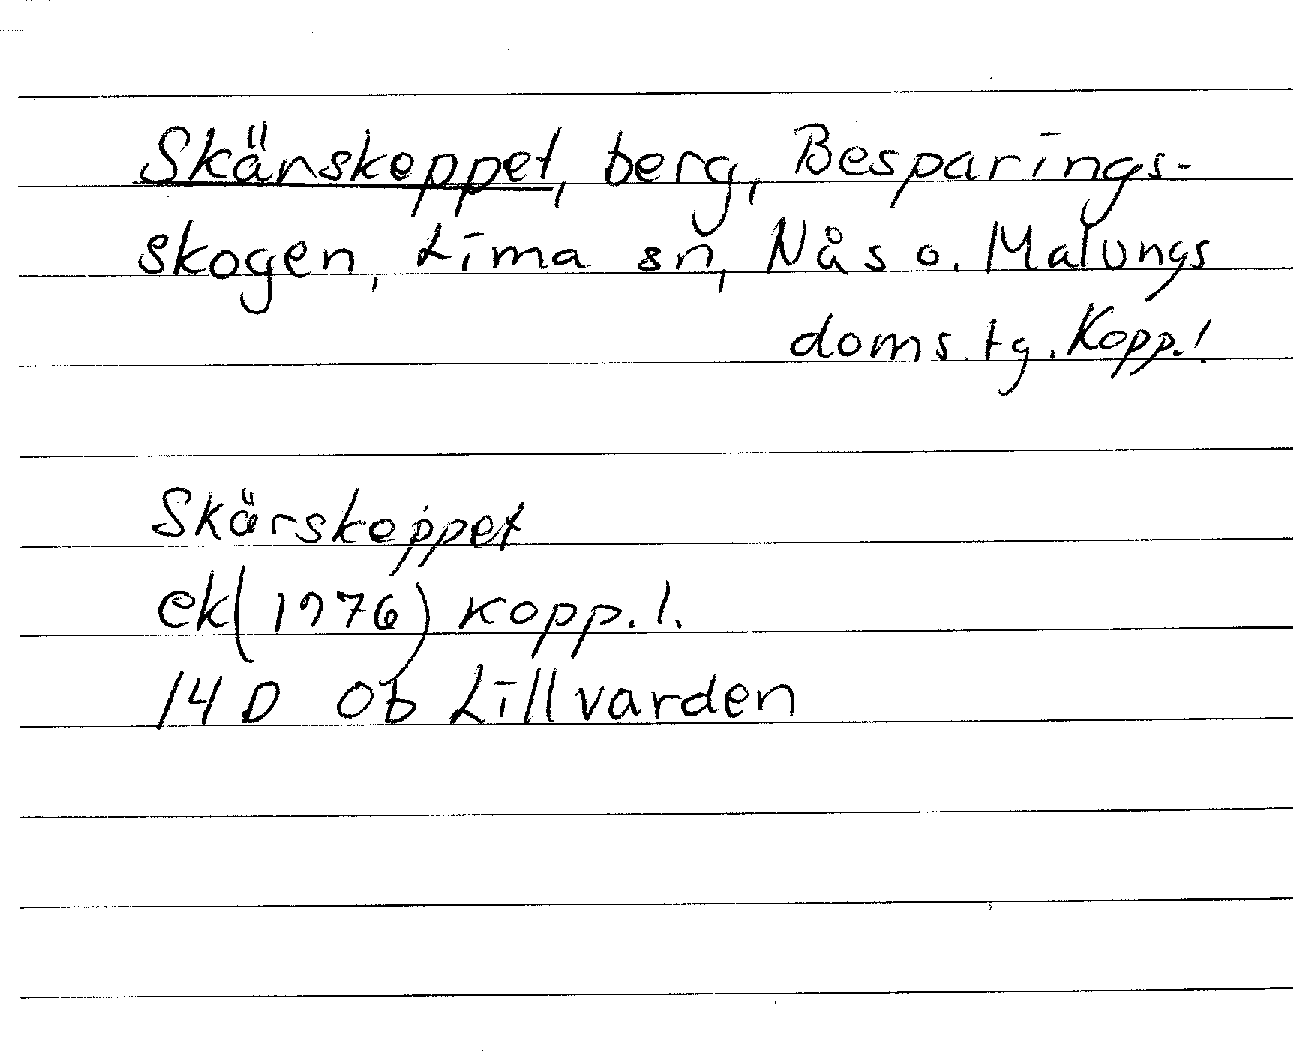 Skärskeppet, berg, Besparings-
skogen, Lima sn, Nås o. Malungs
doms.tg. Kopp.l
Skärskeppet
ek(1976) Kopp.l.
14D 0b Lillvarden